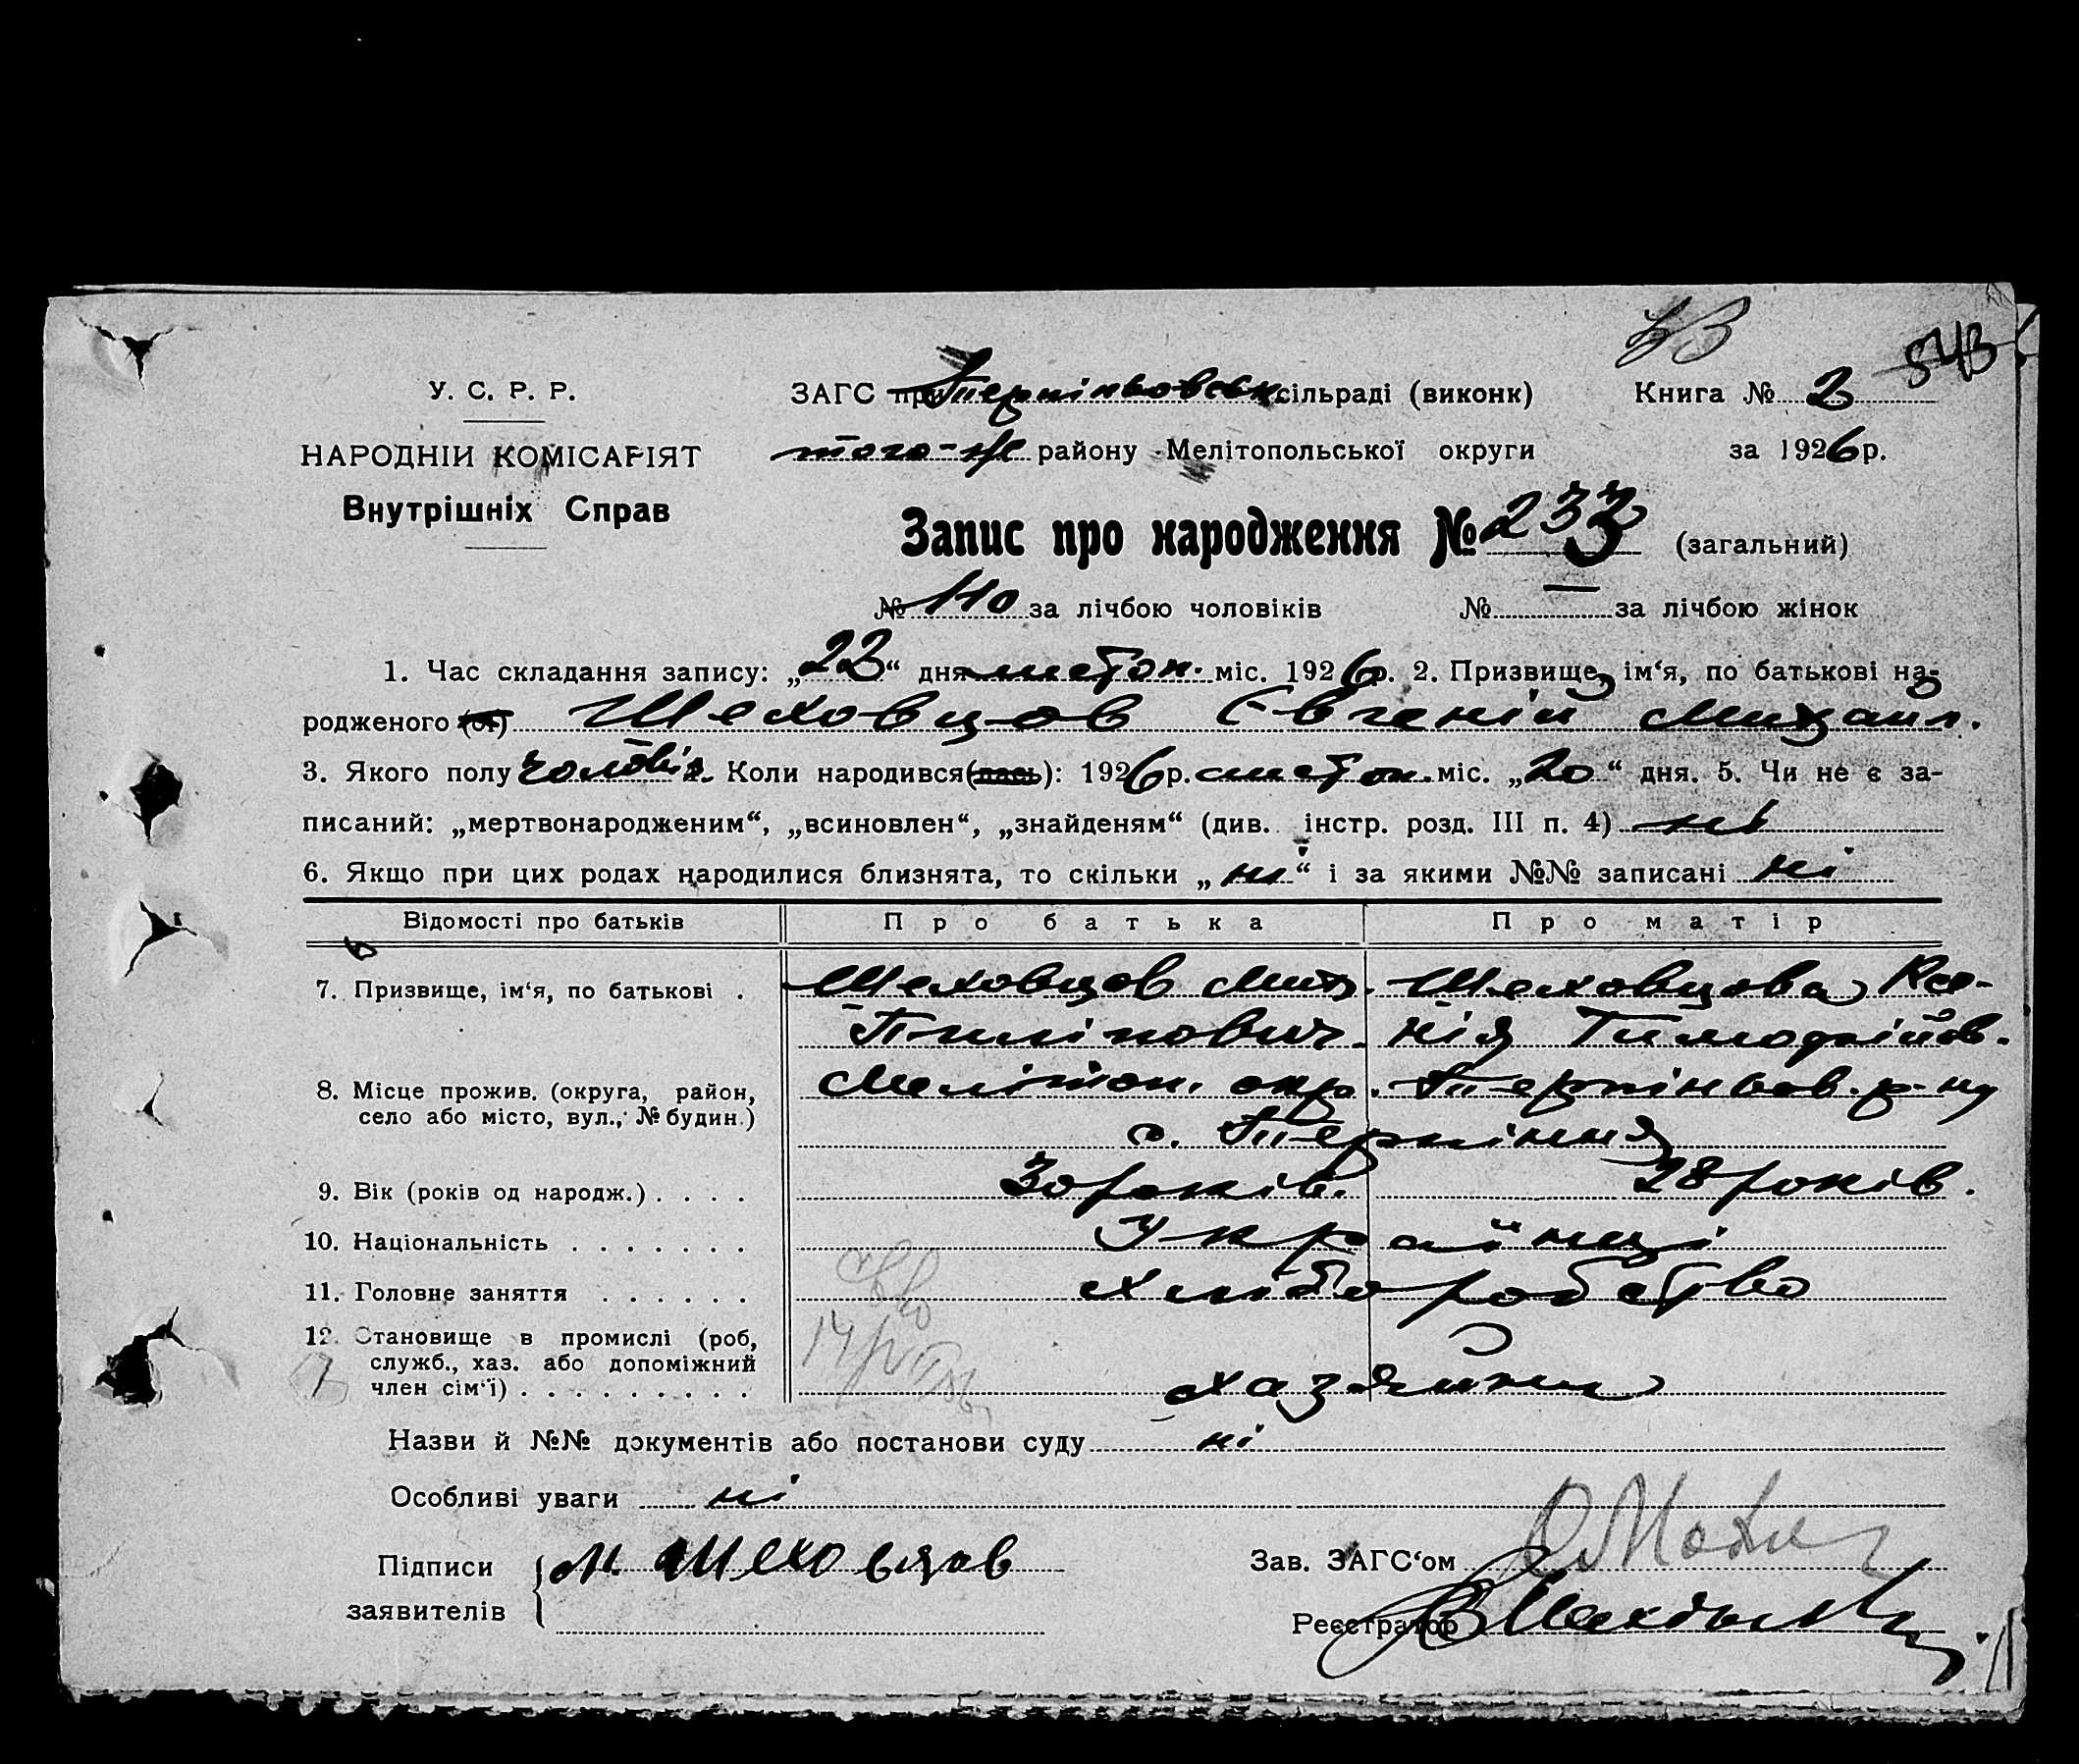 543
У. С. Р. Р.
ЗАГС при Терпіньовськ. сільраді (виконк) Книга № 2
НАРОДНІЙ КОМІСАРІЯТ
того-ж району Мелітопольської округи за 1926 р.
Внутрішніх Справ
Запис про народження № 233 (загальний)
№ 110 за лічбою чоловіків № — за лічбою жінок
1. Час складання запису: „22“ дня листоп. міс. 1926 р. 2. Призвище, ім‘я, по батькові на-
родженого (ої) Шеховцов Євгеній Михайл.
3. Якого полу чоловік. Коли народився (лась): 1926 р. листоп. міс. „20“ дня. 5. Чи не є за-
писаний: „мертвонародженим“, „всиновлен“, „знайденям“ (див. інстр. розд. III п. 4) ні
6. Якщо при цих родах народилися близнята, то скільки „ні“ і за якими №№ записані ні
Відомості про батьків Про батька Про матір
7. Призвище, ім‘я, по батькові . Шеховцов Мих. Шеховцова Ксе-
Пилінович. нія Тимофійов.
8. Місце прожив. (округа, район, Меліtоп. окр. Терпіньов. р-ну
село або місто, вул., № будин.) с. Терпіння
9. Вік (років од народж.) . . . . 30 років. 28 років.
10. Національність . . . . . . . Українці
11. Головне заняття . . . . . . хліборобство
12. Становище в промислі (роб,
служб., хаз. або допоміжний
член сім‘ї) . . . . . . . . . хазяйни
Назви й №№ документів або постанови суду ні
Особливі уваги ні
Підписи М. Шеховцов Зав. ЗАГС‘ом
заявителів Реєстратор